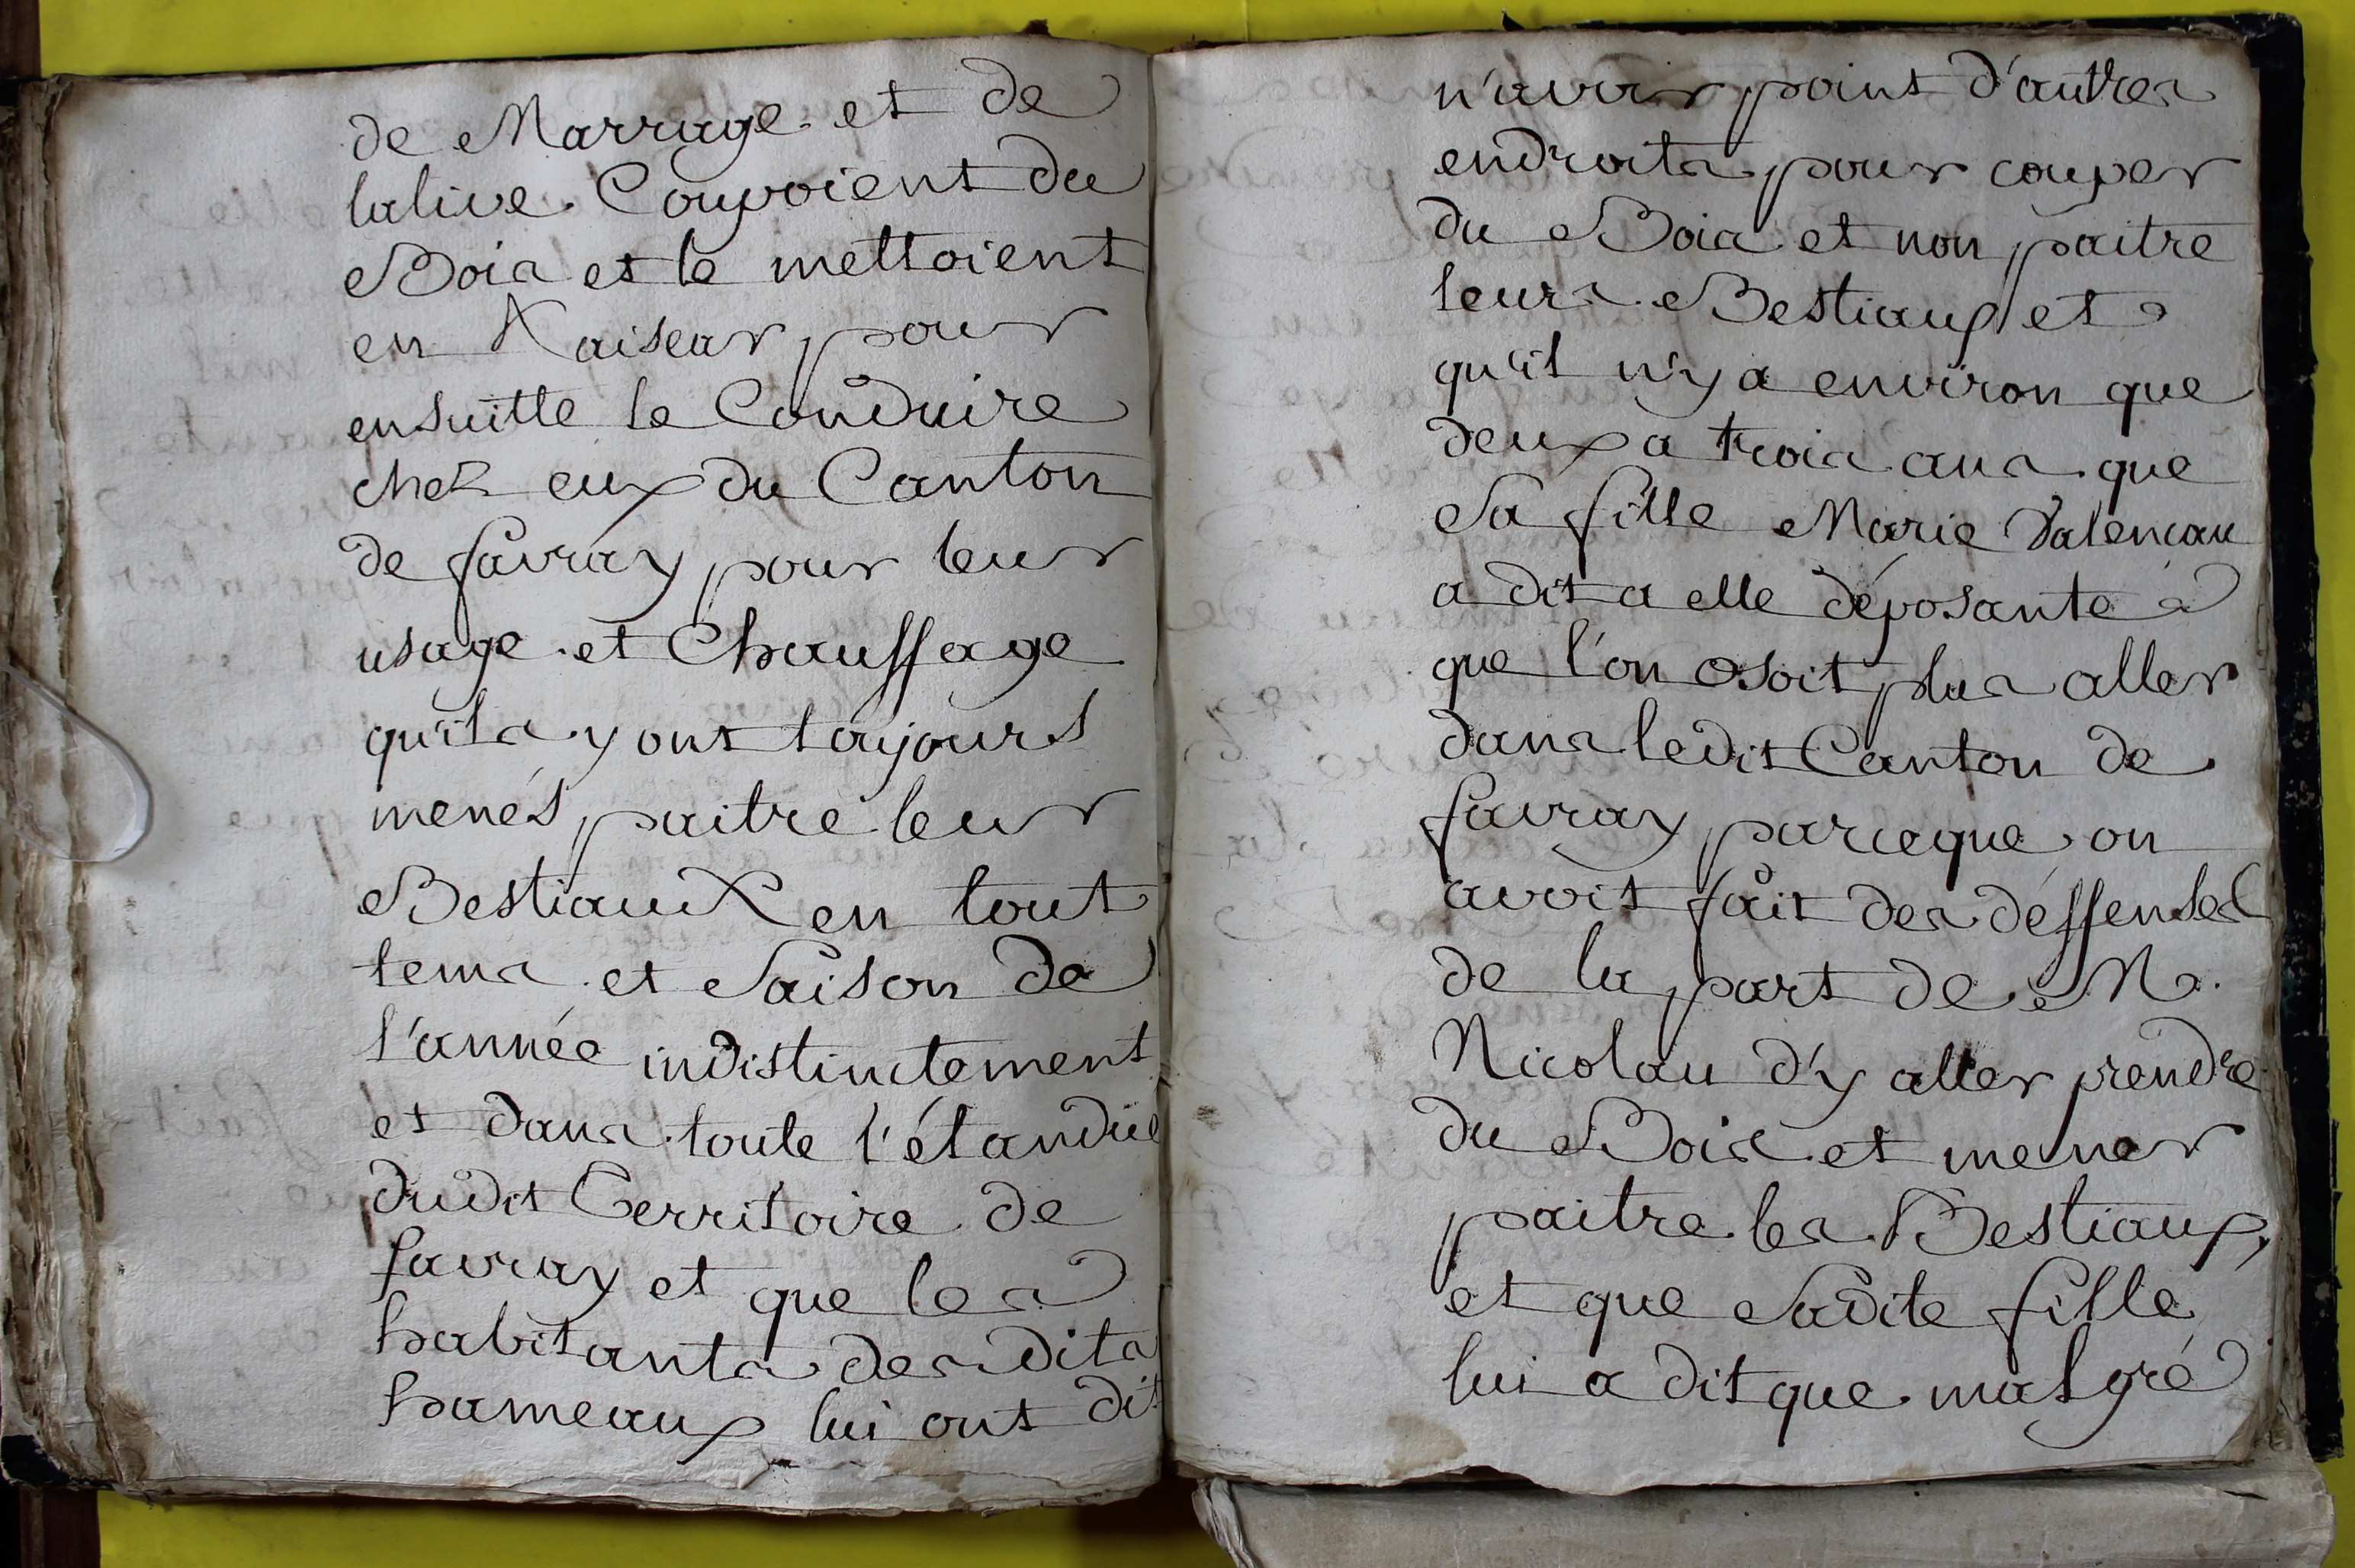 de Marrage et de
lalive Coupoient du
Bois et le mettoient
en Naisear pour
ensuitte le Conduire
chez eux du Canton
de favray pour leur
usage et Chauffage
qu'ils y ont toujours
menés paitre leur
Bestiaux en tout
tems et Saison de
l'année indistinctement
et dans toute l'étandüe
dudit Territoire de
favray et que les
habitants des dits
hameaux lui ont dit
n'avoir point d'autres
endroits pour couper
du Bois et non paitre
leurs Bestiaux et
qu'il n'y a environ que
deux a trois ans que
Sa fille Marie Valencau
a dit a elle déposante
que l'on osoit plus aller
dans ledit Canton de
favray parceque on
avoit fait des déffenses
de la part de M.
Nicolau d'y aller prendre
du Bois et mener
paitre les Bestiaux,
et que Sadite fille
lui a dit que malgré